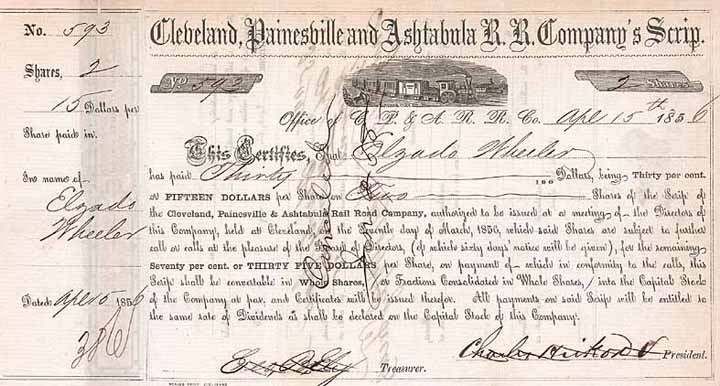 No. 593
Shares, 2
15 Dollars per
Share paid in.
In name of
Elzado
Wheeler
Dated Apr 15 1856
Cleveland, Painesville and Ashtabula R. R. Company's Scrip.
No 593
2 Shares
Office of C. P. & A. R. R. Co. Apl 15th 1856
This Certifies, That Elzado Wheeler
has paid Thirty 100 Dollars, being Thirty per cent.
or FIFTEEN DOLLARS per Share on Two Shares of the Scrip of
the Cleveland, Painesville & Ashtabula Rail Road Company, authorized to be issued at a meeting of the Directors of
this Company, held at Cleveland, on the Twenty day of March, 1856, which said Shares are subject to further
call or calls at the pleasure of the Board of Directors, (of which sixty days notice will be given), for the remaining
Seventy per cent. or THIRTY FIVE DOLLARS per Share, on payment of which in conformity to the calls, this
Scrip shall be convertable in Whole Shares, or Fractions Consolidated in Whole Shares, into the Capital Stock
of the Company at par, and Certificates will be issued therefor. All payments on said Scrip will be entitled to
the same rate of Dividends as shall be declared on the Capital Stock of this Company.
Treasurer.
Charles Hickox President.